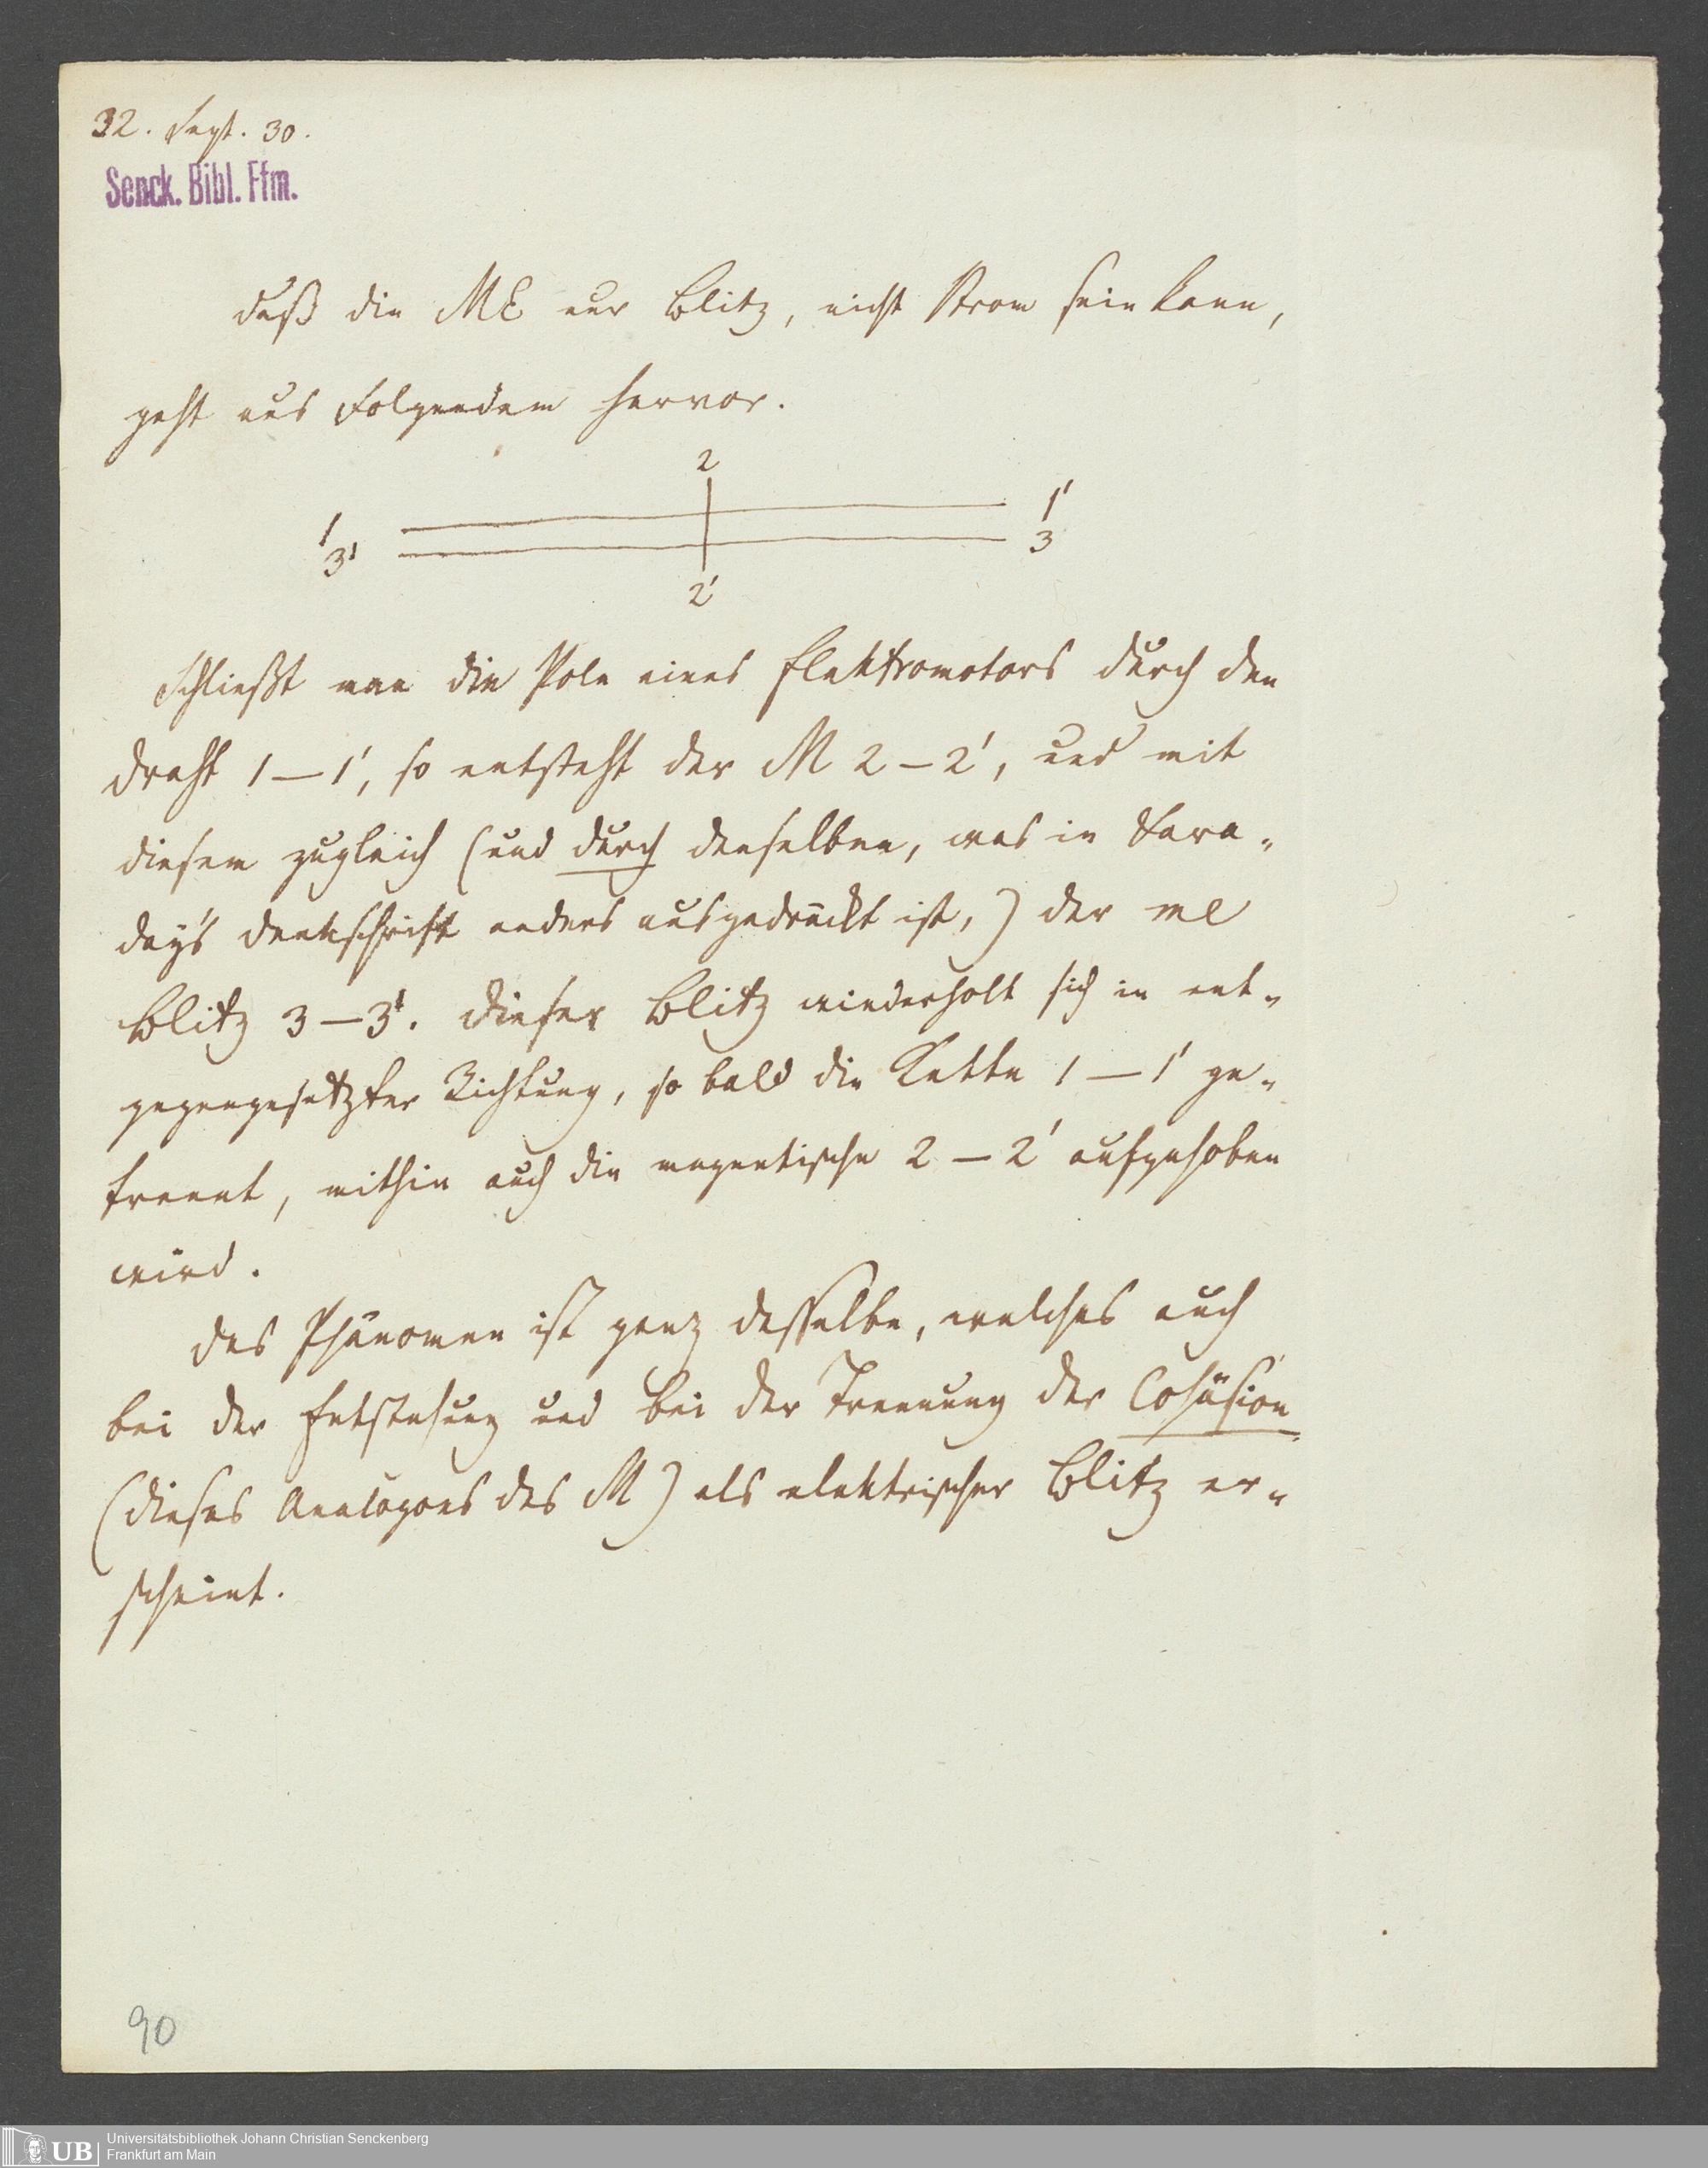 32. Sept. 30.
Senck. Bibl. Ffm.
daß die ME nur Blitz, nicht Strom sein kann,
geht aus Folgendem hervor.
2
1 1'
3' 3
2'
Schließt man die Pole eines Elektromotors durch den
Draht 1 — 1', so entsteht der M 2 — 2', und mit
diesem zugleich (und durch denselben, was in Fara-
day's Denkschrift anders ausgedrückt ist,) der me
Blitz 3 — 3'. Dieser Blitz wiederholt sich in ent-
gegengesetzter Richtung, so bald die Kette 1 — 1' ge-
trennt, mithin auch die magnetische 2 — 2' aufgehoben
wird.
Das Phänomen ist ganz dasselbe, welches auch
bei der Entstehung und bei der Trennung der Cohäsion
(dieses Analogons des M) als elektrischer Blitz er-
scheint.
90
UB
Universitätsbibliothek Johann Christian Senckenberg
Frankfurt am Main